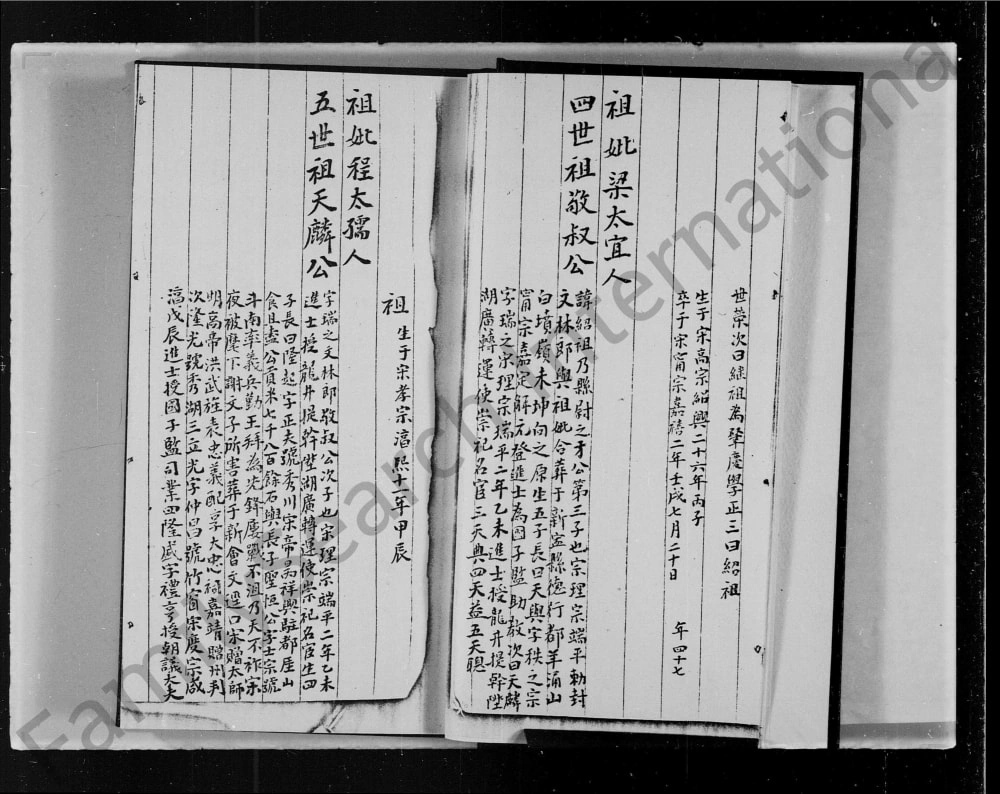 世榮次曰継祖為肇慶學正三曰紹祖
生于宋高宗紹興二十六年丙子
卒于宋甯宗嘉禧二年壬戌七月二十日 年四十七
祖妣梁太宜人
四世祖敬叔公
諱紹祖乃縣尉之才公第三子也宗理宗端平勅封
文林郎與祖妣合葬于新會縣德行都羊涌山
白墳嶺未坤向之原生五子長曰天與字秩之宗
甯宗嘉定解元登進士為國子監助教次曰天麟
字瑞之宗理宗瑞平二年乙未進士授龍升提幹陞
湖廣轉運使崇祀名宦三天典四天益五天聰
祖 生于宋孝宗湻熙十一年甲辰
祖妣程太孺人
五世祖天麟公
字瑞之文林郎敬叔公次子也宋理宗端平二年乙未
進士授龍井提幹陞湖廣轉運使崇祀名宦生四
子長曰隆起字正夫號秀川宋帝昺祥興駐都厓山
食且盡公貢米七千八百餘石與長子聖恒公字士宗號
斗南率義兵勤王拜為先鋒屢戰不沮乃天不祚宋
夜被麾下謝文子所害葬于新會文逕口宋贈太師
明高帝洪武旌表忠義配享大忠祠嘉靖贈州判
次隆光號秀湖三立光字仲昌號竹窗宗度宗咸
湻戊辰進士授國子監司業四隆盛字禮亨授朝議大夫
FamilySearch International